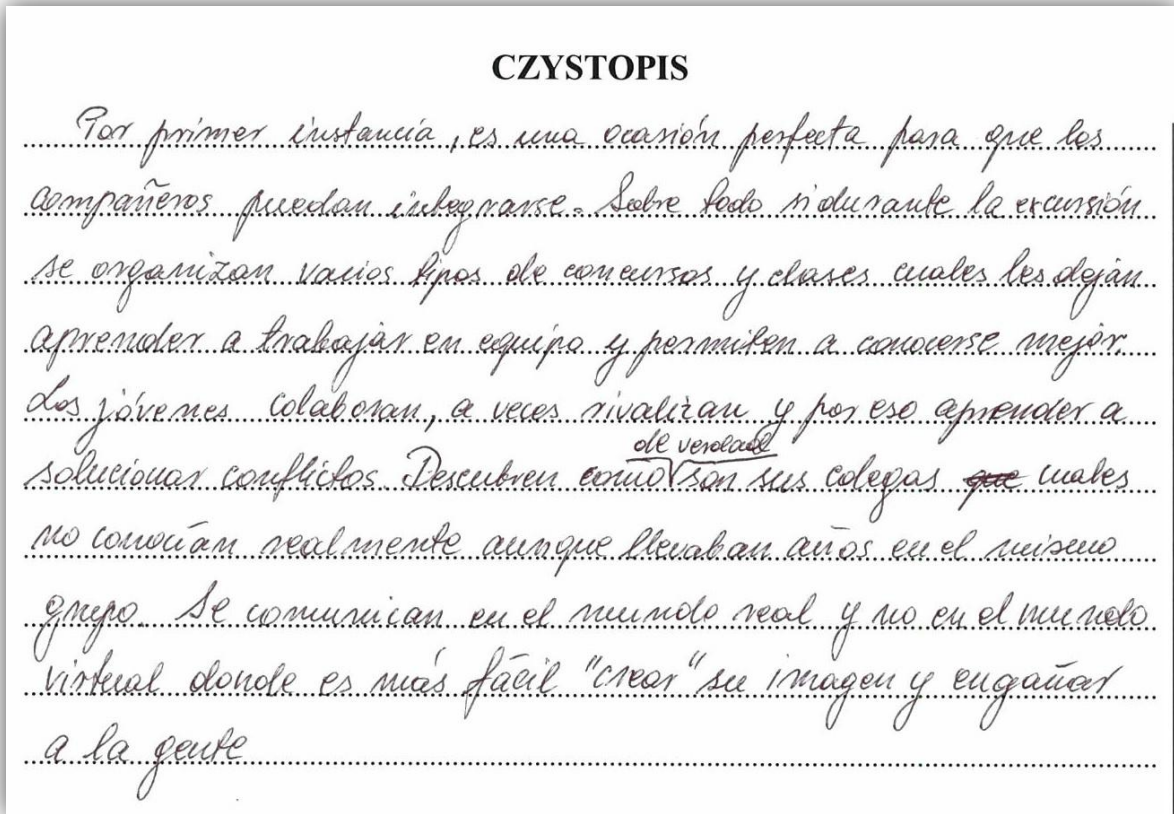 CZYSTOPIS
Por primer instancia, es una ocasión perfecta para que los
compañeros puedan integrarse. Sobre todo si durante la excursión
se organizan varios tipos de concursos y clases cuales les deján
aprender a trabajar en equipo y permiten a conocerse mejór.
Los jóvenes colaboran, a veces rivalizan y por eso aprender a
solucionar conflictos. Descubren como de verdad son sus colegas que cuales
no conocían realmente aunque llevaban años en el mismo
grupo. Se comunican en el mundo real y no en el mundo
virtual donde es más fácil "crear" su imagen y engañar
a la gente